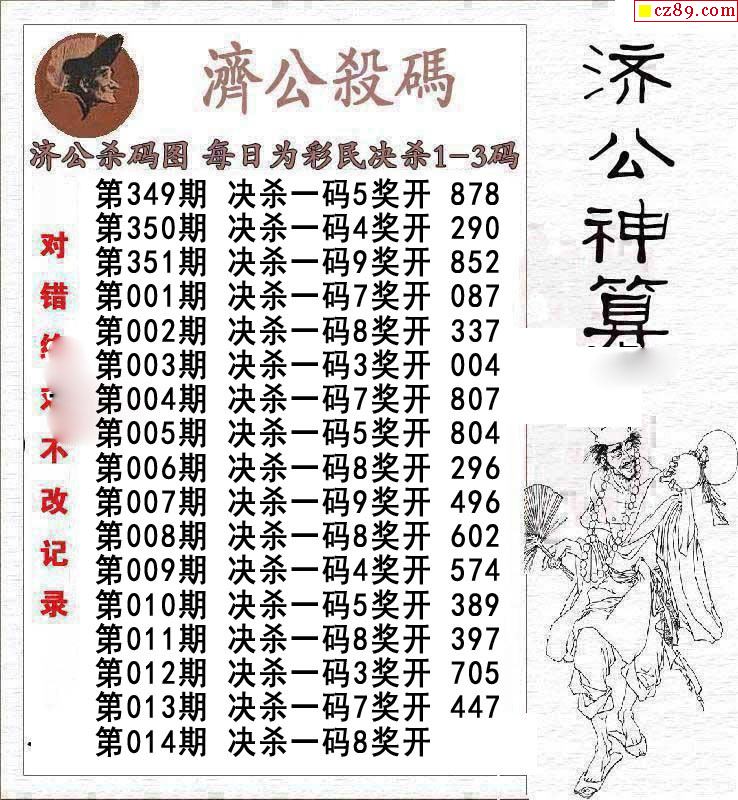 cz89.com
濟公殺碼
济公杀码图 每日为彩民决杀1-3码
第349期 决杀一码5奖开 878
第350期 决杀一码4奖开 290
第351期 决杀一码9奖开 852
第001期 决杀一码7奖开 087
第002期 决杀一码8奖开 337
第003期 决杀一码3奖开 004
第004期 决杀一码7奖开 807
第005期 决杀一码5奖开 804
第006期 决杀一码8奖开 296
第007期 决杀一码9奖开 496
第008期 决杀一码8奖开 602
第009期 决杀一码4奖开 574
第010期 决杀一码5奖开 389
第011期 决杀一码8奖开 397
第012期 决杀一码3奖开 705
第013期 决杀一码7奖开 447
第014期 决杀一码8奖开
对错不改记录
济公神算